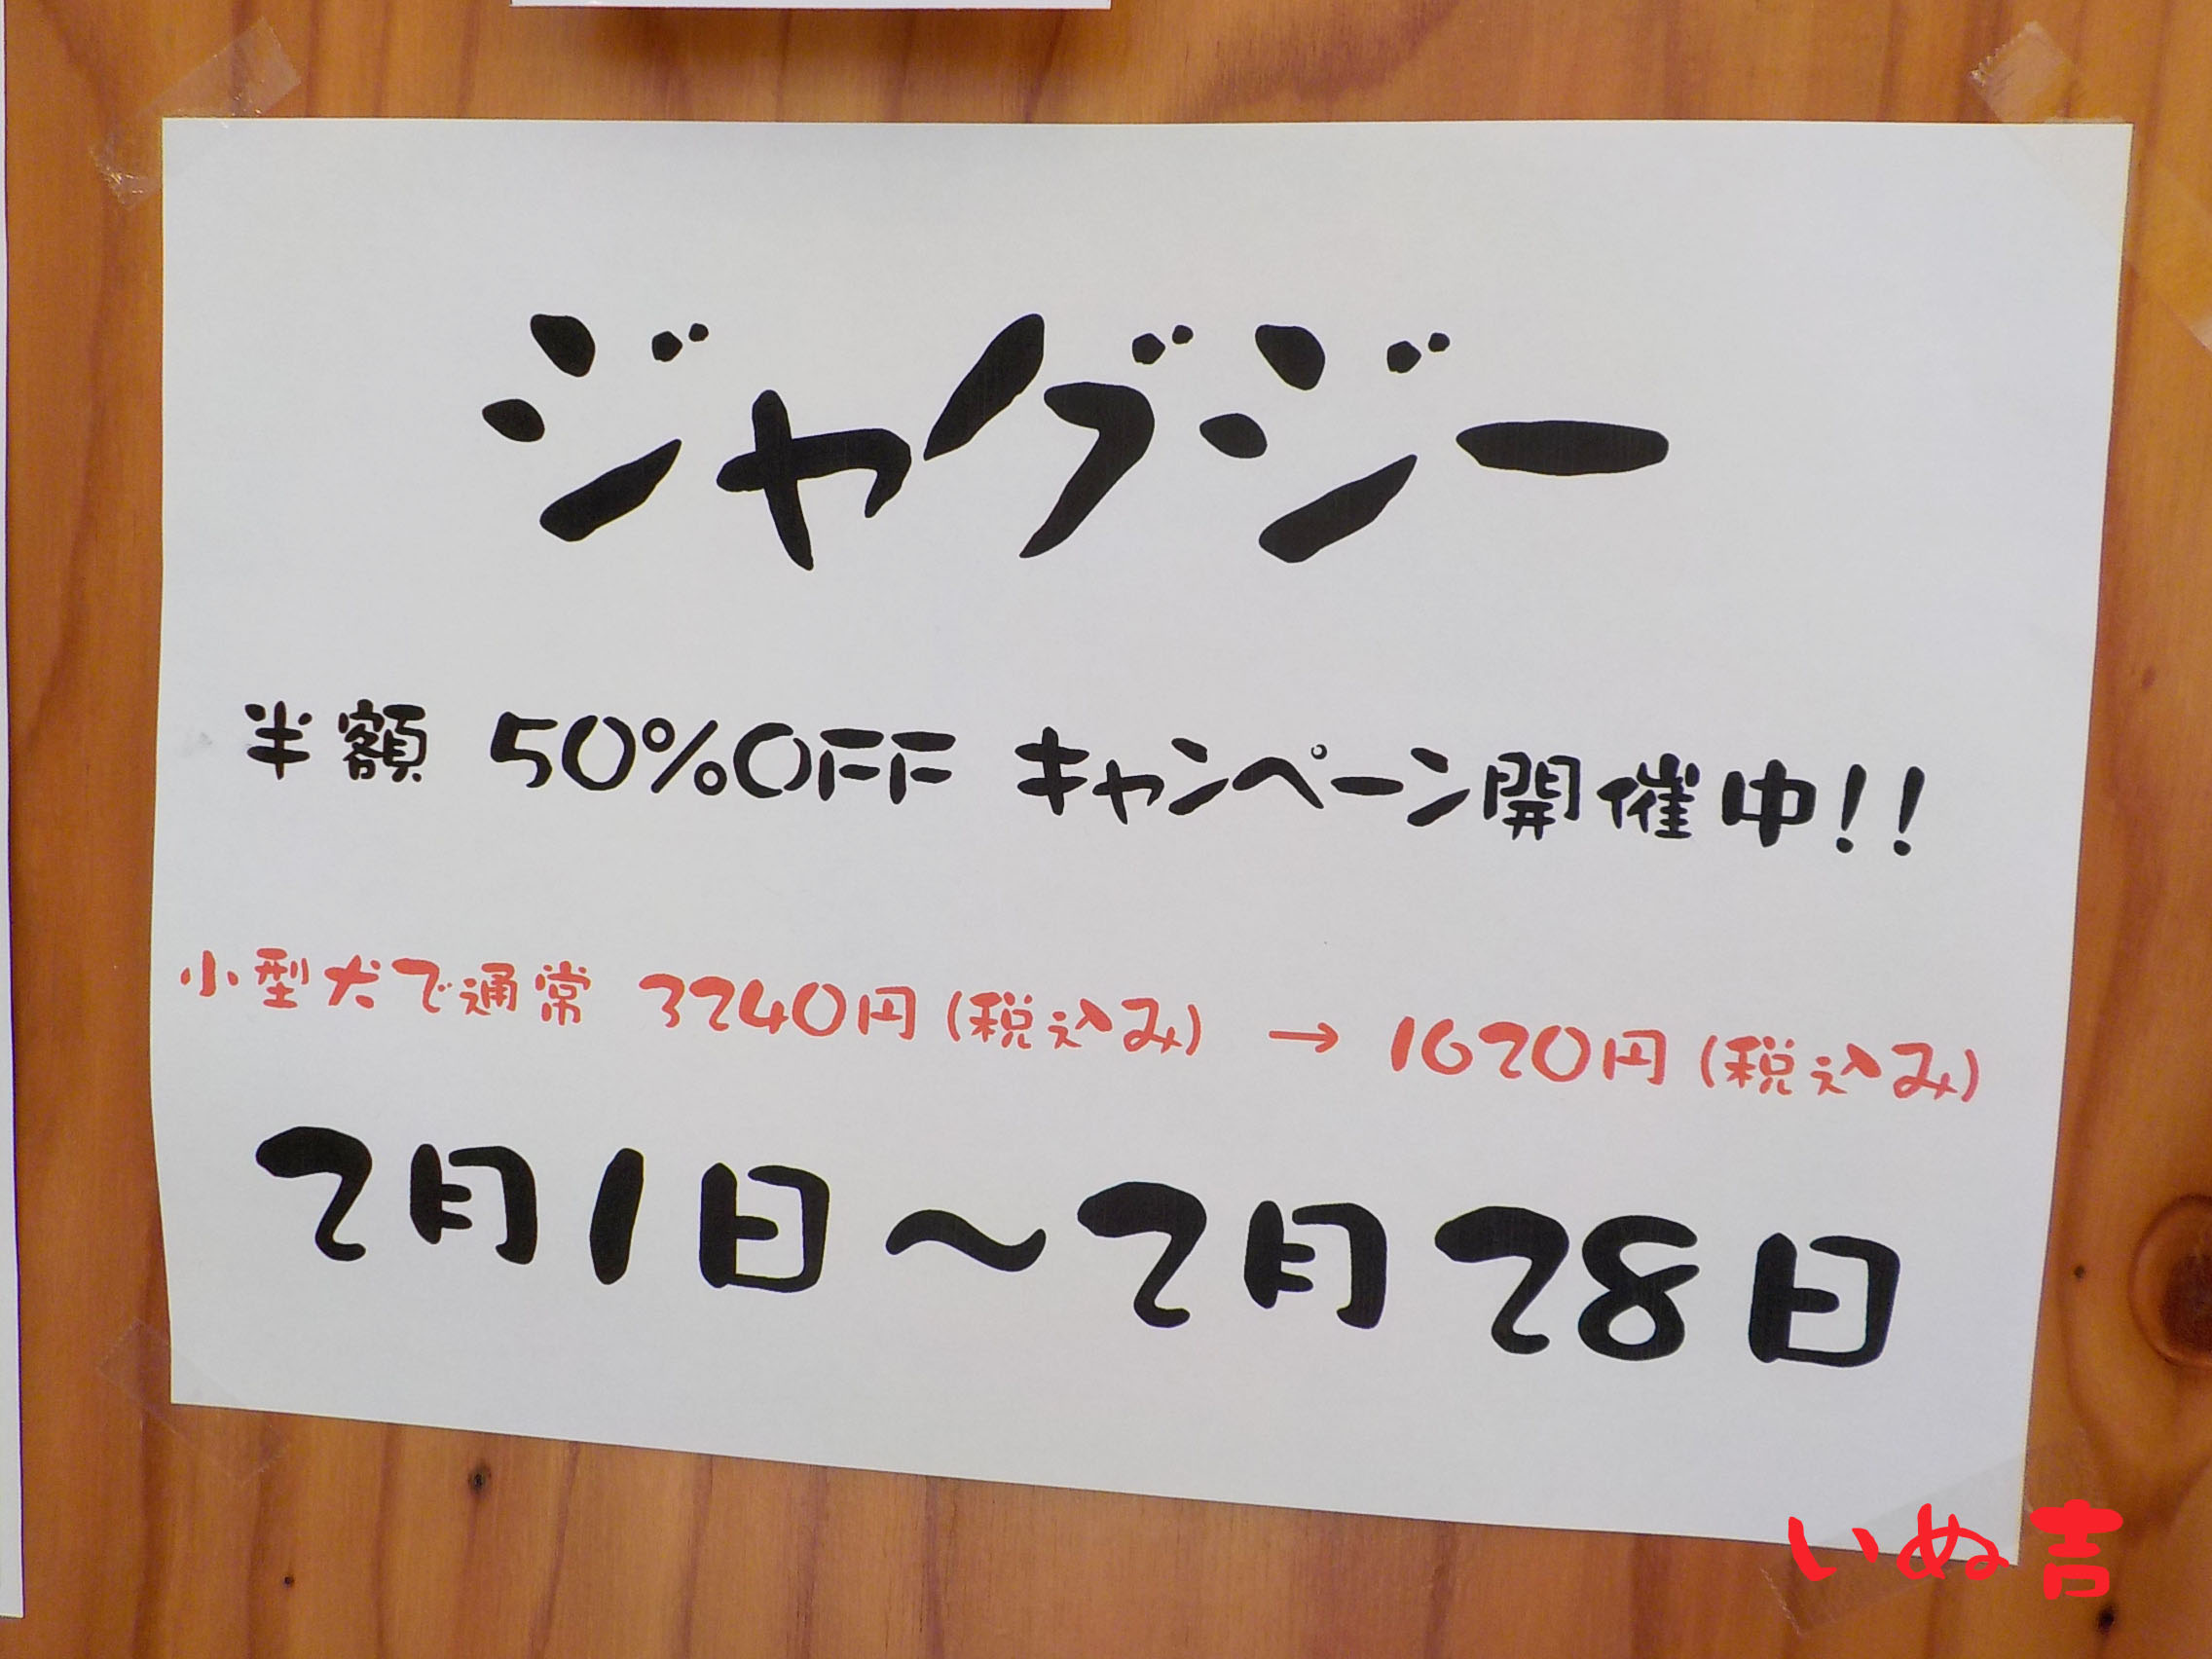 ジャグジー
半額 50%OFF キャンペーン開催中!!
小型犬で通常 3240円(税込み) → 1620円(税込み)
2月1日~2月28日
いぬ吉